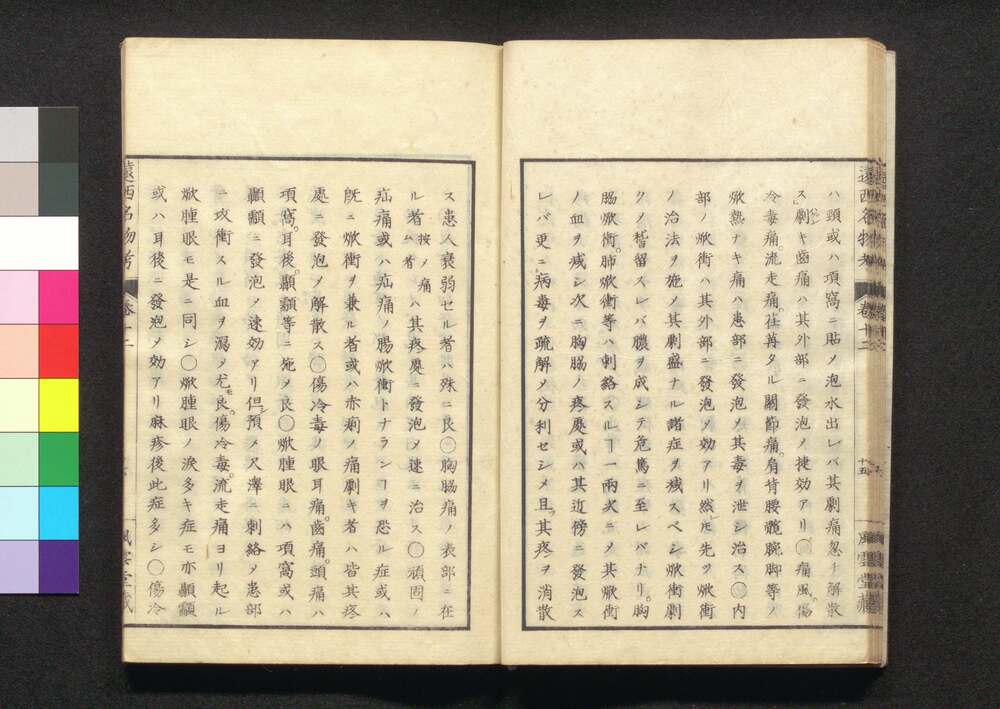 ハ頸或ハ項窩ニ貼メ泡水出レバ其劇痛忽チ解散
ス劇キ齒痛ハ其外部ニ發泡メ捷効アリ○痛風。傷
冷毒痛。流走痛荏苒タル關節痛。肩背腰髖腕脚等ノ
焮熱ナキ痛ハ患部ニ發泡メ其毒ヲ泄シ治ス○内
部ノ焮衝ハ其外部ニ發泡メ効アリ然ㇾ𪜈先ツ焮衝
ノ治法ヲ施メ其劇盛ナル諸症ヲ減スベシ焮衝劇
クノ稽留スレバ膿ヲ成シテ危篤ニ至レバナリ。胸
膈焮衝。肺焮衝等ハ刺絡スルヿ一兩次ニメ其焮衝
ノ血ヲ減シ次ニ胸膈ノ疼處或ハ其近傍ニ發泡ス
レバ更ニ病毒ヲ疏解メ分利セシメ且ツ其疼ヲ消散
遠西名物考 卷十二 十五 風雲堂藏
ス患人衰弱セル者ハ殊ニ良○胸膈痛ノ表部ニ在
ル者按メ痛ム者ハ其疼處ニ發泡メ速ニ治ス○頑固ノ
疝痛或ハ疝痛ノ腸焮衝トナランヿヲ恐ル症或ハ
既ニ焮衝ヲ兼ル者或ハ赤痢ノ痛劇キ者ハ皆其疼
處ニ發泡メ解散ス○傷冷毒ノ眼耳痛。齒痛。頭痛ハ
項窩。耳後。顳顬等ニ施メ良○焮腫眼ニハ項窩或ハ
顳顬ニ發泡メ速効アリ但シ預メ尺澤ニ刺絡メ患部
ニ攻衝スル血ヲ瀉メ尤モ良。傷冷毒。流走痛ヨリ起ル
焮腫眼モ是ニ同シ○焮腫眼ノ淚多キ症モ亦顳顬
或ハ耳後ニ發泡メ効アリ麻疹後此症多シ○傷冷
遠西名物考 卷十二 風雲堂藏